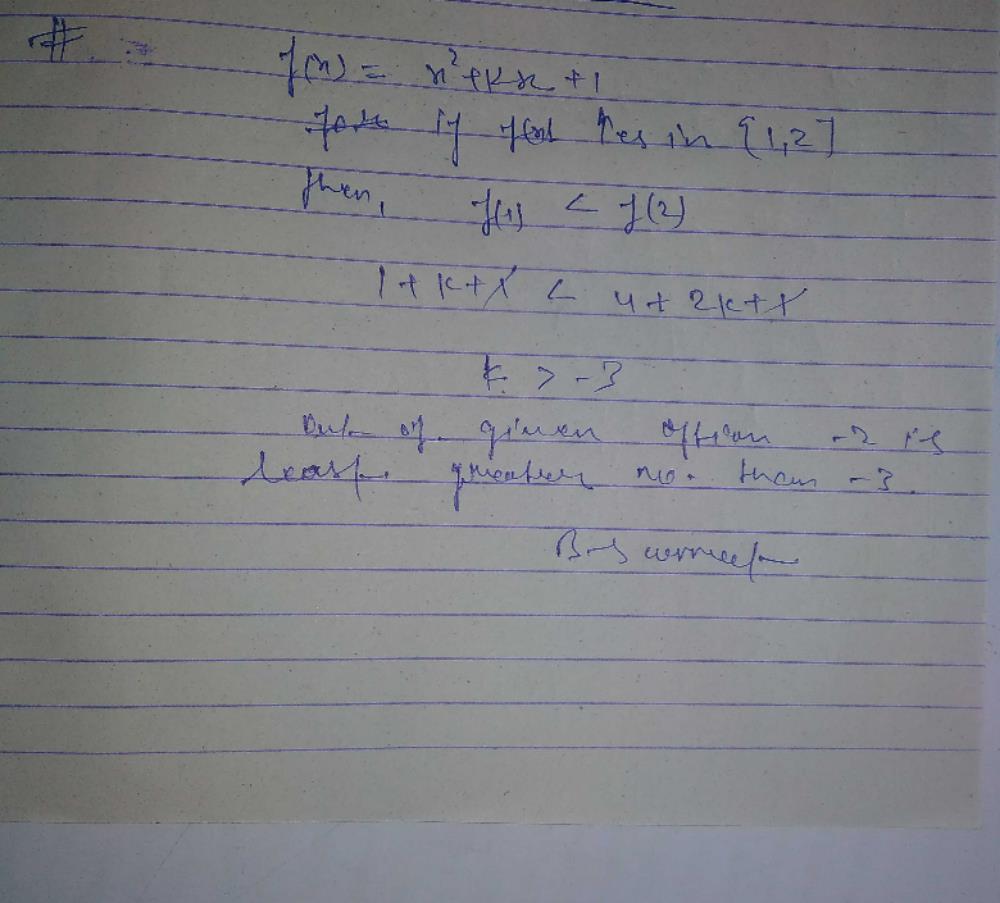 #
f(x) = x²+kx+1
If f(x) ↑es in [1,2]
then, f(1) < f(2)
1+k+1 < 4+2k+1
k > -3
Out of given option -2 is
least greater no. than -3.
B is correct